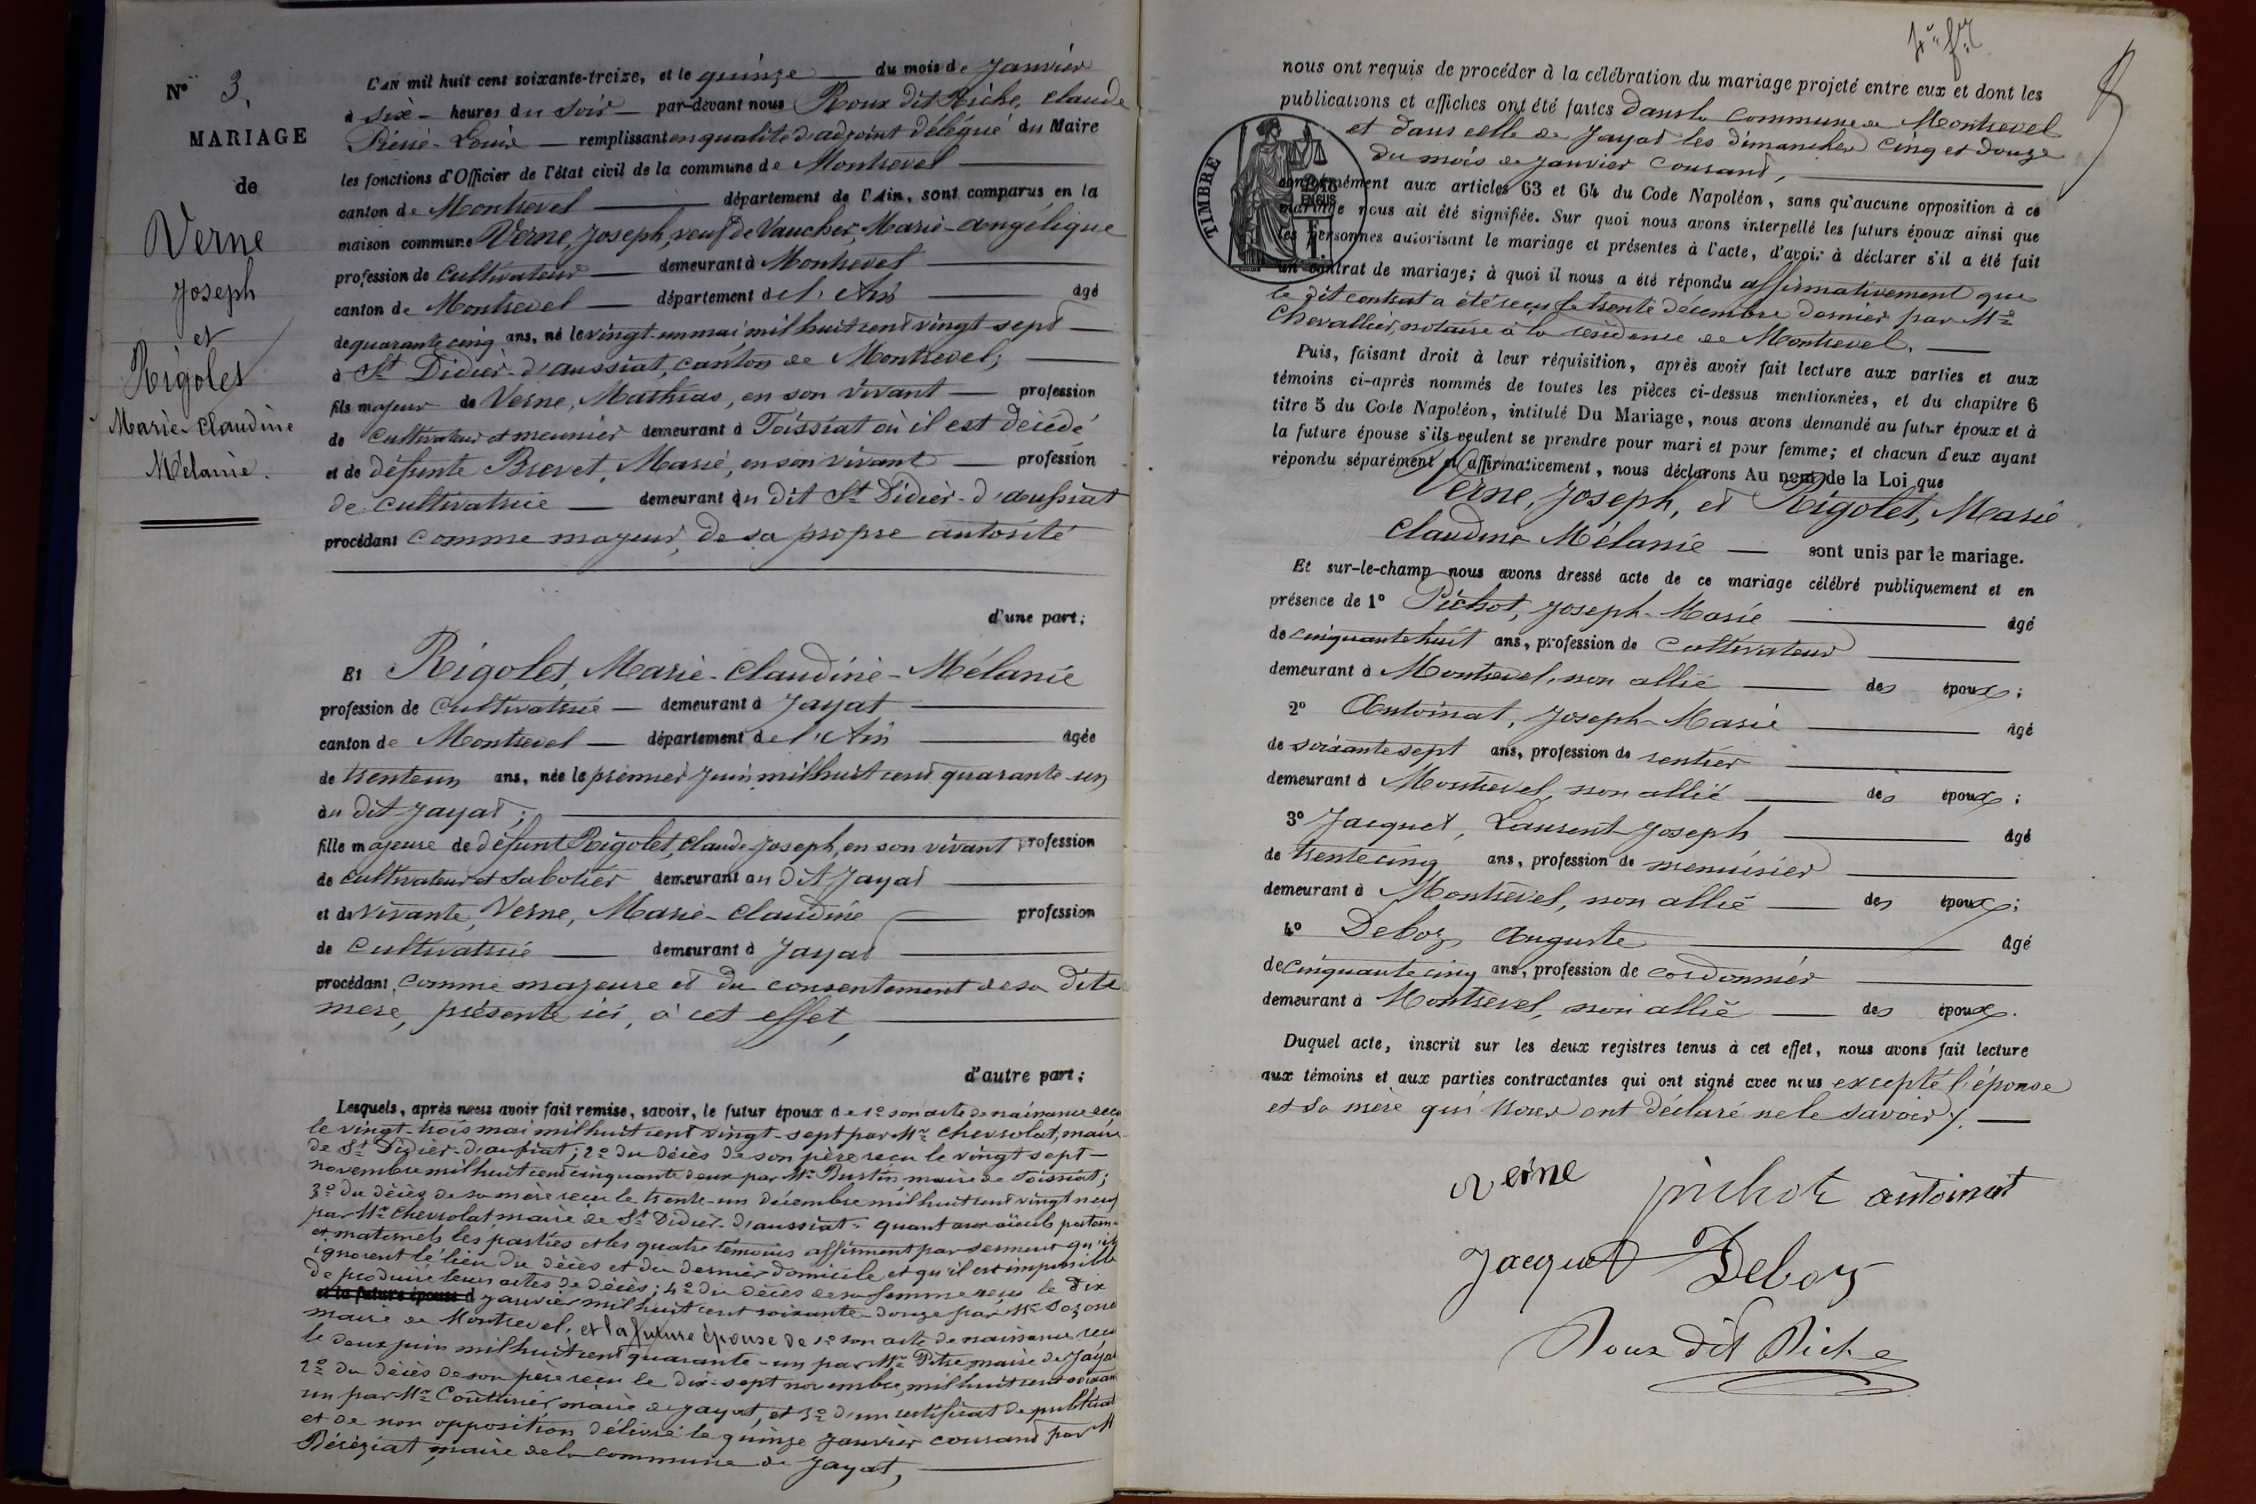 N° 3.
MARIAGE
de
Verne
Joseph
et
Rigolet
Marie-Claudine
Mélanie.
L'AN mil huit cent soixante-treize, et le quinze du mois de Janvier
à six heures du soir par-devant nous Roux dit Riche, Claude
Pierre-Louis remplissant en qualité d'adjoint délégué du Maire
les fonctions d'Officier de l'état civil de la commune de Montrevel
canton de Montrevel département de l'Ain, sont comparus en la
maison commune Verne, Joseph, veuf de Vaucher, Marie-Angélique
profession de cultivateur demeurant à Montrevel
canton de Montrevel département de l'Ain âgé
de quarante cinq ans, né le vingt-un mai mil huit cent vingt-sept
à St Didier-d'aussiat, canton de Montrevel;
fils majeur de Verne, Mathias, en son vivant profession
de cultivateur et meunier demeurant à Foissiat où il est décédé
et de défunte Brevet, Marie, en son vivant profession
de cultivatrice demeurant au dit St Didier-d'aussiat
procédant comme majeur, de sa propre autorité
d'une part;
Et Rigolet, Marie-Claudine-Mélanie
profession de cultivatrice demeurant à Jayat
canton de Montrevel département de l'Ain âgée
de trente un ans, née le premier Juin mil huit cent quarante-un
au dit Jayat;
fille majeure de défunt Rigolet, Claude-Joseph, en son vivant profession
de cultivateur et sabotier demeurant au dit Jayat
et de vivante, Verne, Marie-Claudine profession
de cultivatrice demeurant à Jayat
procédant comme majeure et du consentement de sa dite
mère, présente ici, à cet effet,
d'autre part;
Lesquels, après nous avoir fait remise, savoir, le futur époux de 1° son acte de naissance reçu
le vingt-trois mai mil huit cent vingt-sept par Mr Chevrolat, maire
de St Didier-d'aussiat; 2° du décès de son père reçu le vingt sept
novembre mil huit cent cinquante deux par Mr Bustin, maire de Foissiat;
3° du décès de sa mère reçu le trente-un décembre mil huit cent vingt neuf
par Mr Chevrolat maire de St Didier-d'aussiat; quant aux aïeuls patern
et maternels les parties et les quatre témoins affirment par serment qu'ils
ignorent le lieu du décès et du dernier domicile et qu'il est impossible
de produire leurs actes de décès; 4° du décès de sa femme reçu le dix
et la future épouse d janvier mil huit cent soixante-douze par Mr
maire de Montrevel, et la future épouse de 1° son acte de naissance reçu
le deux juin mil huit cent quarante-un par Mr Pitre maire de Jayat
2° du décès de son père reçu le dix-sept novembre mil huit cent soixante
un par Mr Couturier maire de Jayat, et 3° d'un certificat de publicat
et de non opposition délivré le quinze Janvier courant par M
Béréziat, maire de la commune de Jayat,
nous ont requis de procéder à la célébration du mariage projeté entre eux et dont les
publications et affiches ont été faites dans la commune de Montrevel
et dans celle de Jayat les dimanches cinq et douze
du mois de Janvier courant,
TIMBRE
conformément aux articles 63 et 64 du Code Napoléon, sans qu'aucune opposition à ce
mariage nous ait été signifiée. Sur quoi nous avons interpellé les futurs époux ainsi que
les personnes autorisant le mariage et présentes à l'acte, d'avoir à déclarer s'il a été fait
un contrat de mariage; à quoi il nous a été répondu affirmativement que
le dit contrat a été reçu le trente décembre dernier par Me
Chevallier, notaire à la résidence de Montrevel.
Puis, faisant droit à leur réquisition, après avoir fait lecture aux parties et aux
témoins ci-après nommés de toutes les pièces ci-dessus mentionnées, et du chapitre 6
titre 5 du Code Napoléon, intitulé Du Mariage, nous avons demandé au futur époux et à
la future épouse s'ils veulent se prendre pour mari et pour femme; et chacun d'eux ayant
répondu séparément et affirmativement, nous déclarons Au nom de la Loi que
Verne, Joseph, et Rigolet, Marie
Claudine Mélanie sont unis par le mariage.
Et sur-le-champ nous avons dressé acte de ce mariage célébré publiquement et en
présence de 1° Pichot, Joseph-Marie âgé
de cinquante huit ans, profession de cultivateur
demeurant à Montrevel, non allié des époux;
2° Antoinat, Joseph-Marie âgé
de soixante sept ans, profession de rentier
demeurant à Montrevel, non allié des époux;
3° Jacquet, Laurent-Joseph âgé
de trente cinq ans, profession de menuisier
demeurant à Montrevel, non allié des époux;
4° Deboz, Auguste âgé
de cinquante cinq ans, profession de cordonnier
demeurant à Montrevel, non allié des époux.
Duquel acte, inscrit sur les deux registres tenus à cet effet, nous avons fait lecture
aux témoins et aux parties contractantes qui ont signé avec nous excepté l'épouse
et sa mère qui tous ont déclaré ne le savoir.
Verne pichot antoinat
Jacquet Deboz
Roux dit Riche